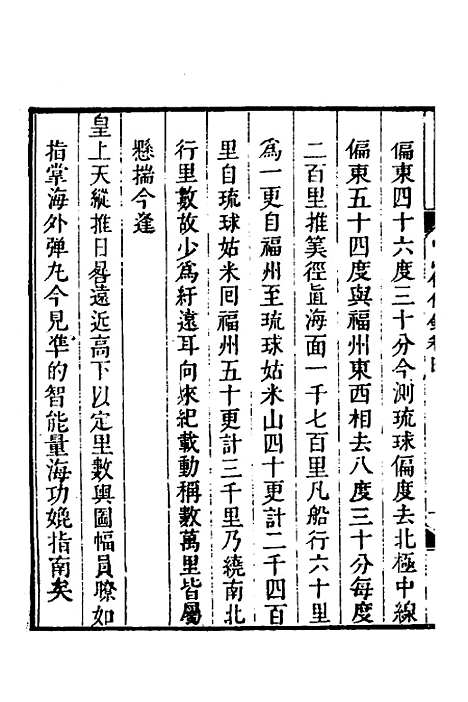 偏東四十六度三十分今測琉球偏度去北極中線
偏東五十四度與福州東西相去八度三十分每度
二百里推算徑直海面一千七百里凡船行六十里
爲一更自福州至琉球姑米山四十更計二千四百
里自琉球姑米囘福州五十更計三千里乃繞南北
行里數故少爲紆遠耳向來紀載動稱數萬里皆屬
懸揣今逢
皇上天縱推日晷遠近高下以定里數與圖幅員瞭如
指掌海外彈丸今見準的智能量海功媲指南矣